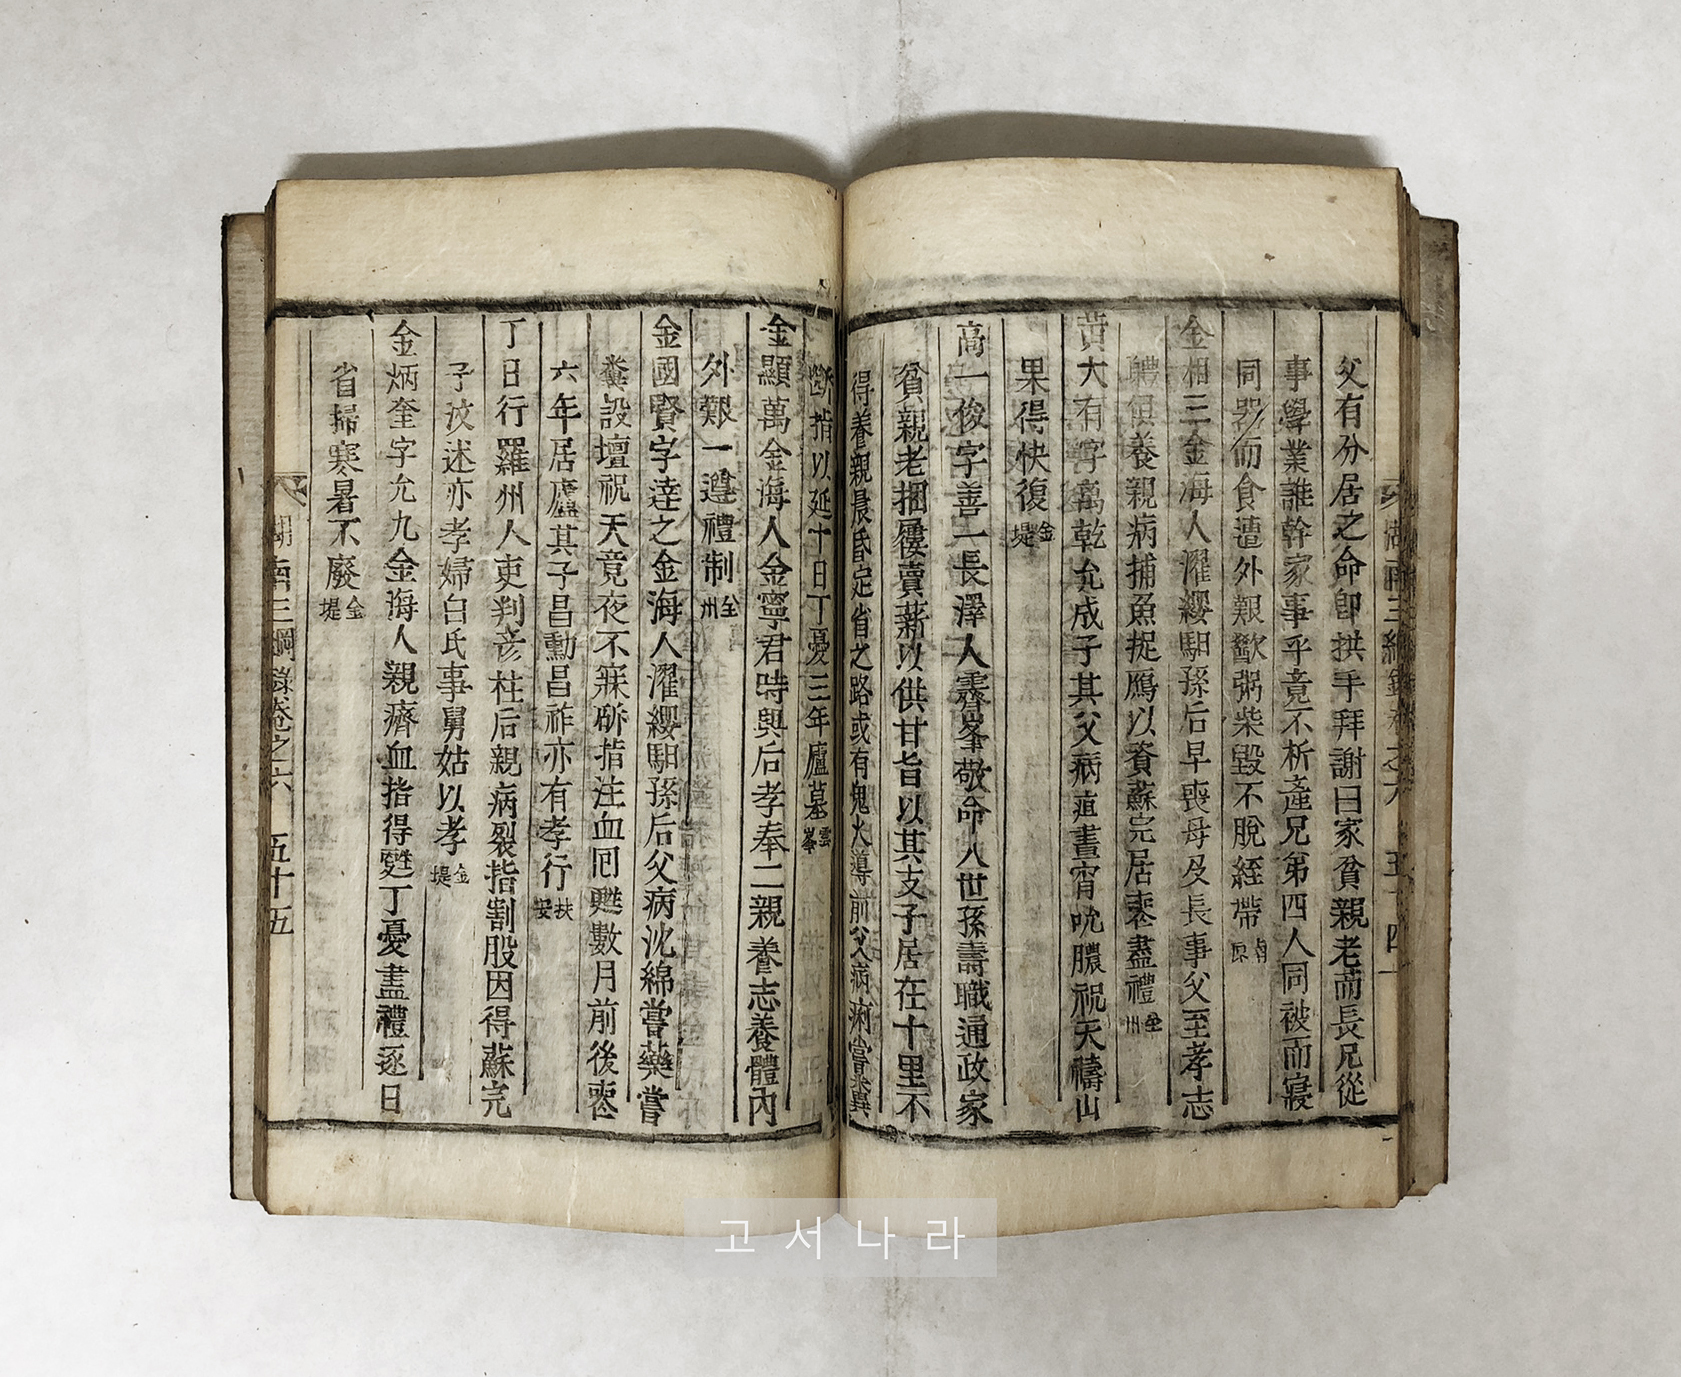 父有分居之命卽拱手拜謝曰家貧親老而長兄從
事學業誰幹家事乎竟不析產兄弟四人同被而寢
同器而食遭外艱歠粥柴毁不脫絰帶
金相三金海人濯纓馹孫后早喪母及長事父至孝志
軆俱養親病捕魚捉鴈以資蘇完居喪盡禮 全州
黃大有字萬乾允成子其父病疽晝宵吮膿祝天禱山
果得快復 金堤
高一俊字善一長澤人霽峯敬命八世孫壽職通政家
貧親老捆屨賣薪以供甘旨以其支子居在十里不
得養親晨昏定省之路或有鬼火導前父病痢嘗糞
斷指以延十日丁憂三年廬墓 雲峯
金顯萬金海人金寧君時興后孝奉二親養志養體內
外艱一遵禮制 全州
金國賢字達之金海人濯纓馹孫后父病沈綿嘗藥嘗
糞設壇祝天竟夜不寐斫指注血囘甦數月前後喪
六年居廬其子昌勳昌祚亦有孝行 扶安
丁日行羅州人吏判彦柱后親病裂指割股因得蘇完
子汶述亦孝婦白氏事舅姑以孝 金堤
金炳奎字允九金海人親癠血指得甦丁憂盡禮逐日
省掃寒暑不廢 金堤
湖南三綱錄卷之六 五十五
고서나라